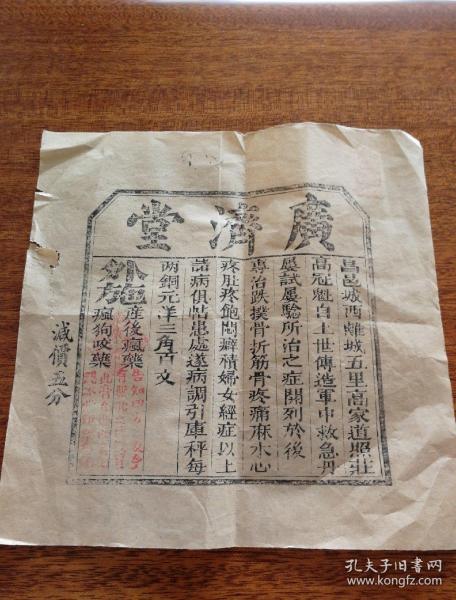 廣濟堂
昌邑城西離城五里高家道照莊
高冠魁自上世傳造軍中救急丹
屡試屡驗所治之症開列於後
專治跌撲骨折筋骨疼痛麻木心
疼肚疼飽悶癖積婦女經症以上
諸病俱帖患處遂病調引庫秤每
两銅元洋三角 文
外施
産後瘋藥
瘋狗咬藥
減價五分
孔夫子旧书网
www.kongfz.com